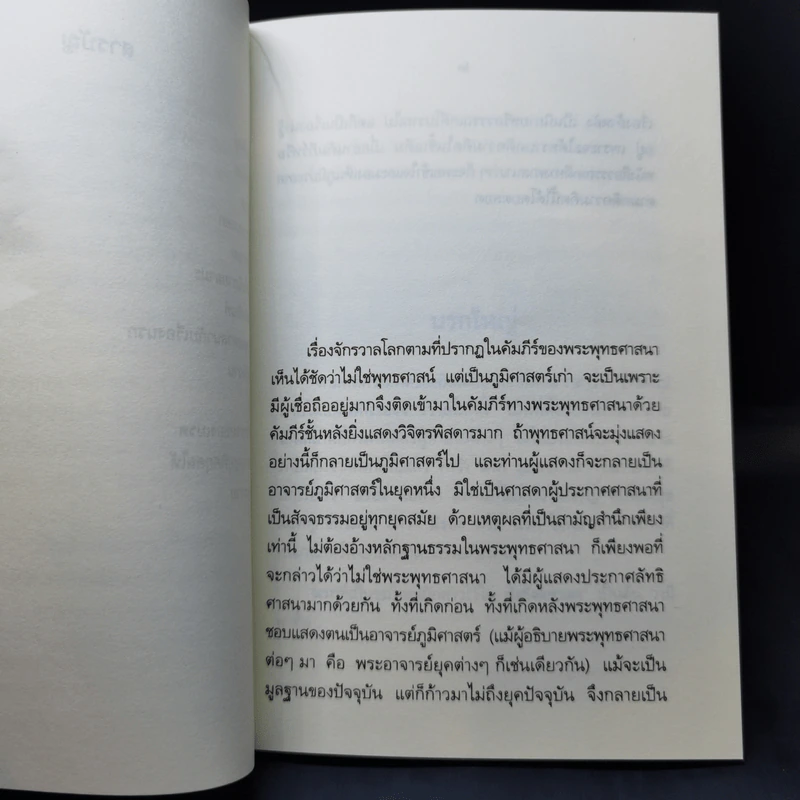 เรื่องจักรวาลโลกตามที่ปรากฏในคัมภีร์ของพระพุทธศาสนา
เห็นได้ชัดว่าไม่ใช่พุทธศาสน์ แต่เป็นภูมิศาสตร์เก่า จะเป็นเพราะ
มีผู้เชื่อถืออยู่มากจึงติดเข้ามาในคัมภีร์ทางพระพุทธศาสนาด้วย
คัมภีร์ชั้นหลังยิ่งแสดงวิจิตรพิสดารมาก ถ้าพุทธศาสน์จะมุ่งแสดง
อย่างนี้ก็กลายเป็นภูมิศาสตร์ไป และท่านผู้แสดงก็จะกลายเป็น
อาจารย์ภูมิศาสตร์ในยุคหนึ่ง มิใช่เป็นศาสดาผู้ประกาศศาสนาที่
เป็นสัจจธรรมอยู่ทุกยุคสมัย ด้วยเหตุผลที่เป็นสามัญสำนึกเพียง
เท่านี้ ไม่ต้องอ้างหลักฐานธรรมในพระพุทธศาสนา ก็เพียงพอที่
จะกล่าวได้ว่าไม่ใช่พระพุทธศาสนา ได้มีผู้แสดงประกาศลัทธิ
ศาสนามากด้วยกัน ทั้งที่เกิดก่อน ทั้งที่เกิดหลังพระพุทธศาสนา
ชอบแสดงตนเป็นอาจารย์ภูมิศาสตร์ (แม้ผู้อธิบายพระพุทธศาสนา
ต่อๆ มา คือ พระอาจารย์ยุคต่างๆ ก็เช่นเดียวกัน) แม้จะเป็น
มูลฐานของปัจจุบัน แต่ก็ก้าวมาไม่ถึงยุคปัจจุบัน จึงกลายเป็น